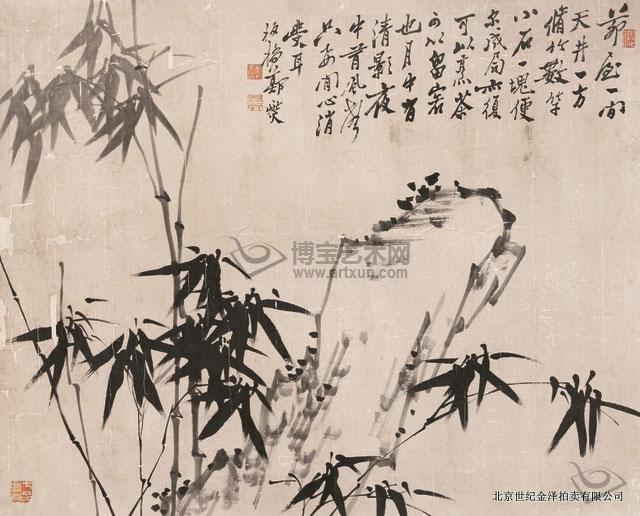 茅屋一間
天井一方
脩竹數竿
小石一塊便
尔成局亦復
可以烹茶
可以留客
也月中有
清影夜
中有風聲
只要閒心消
受耳
板橋鄭燮
博宝艺术网
www.artxun.com
北京世纪金泽拍卖有限公司